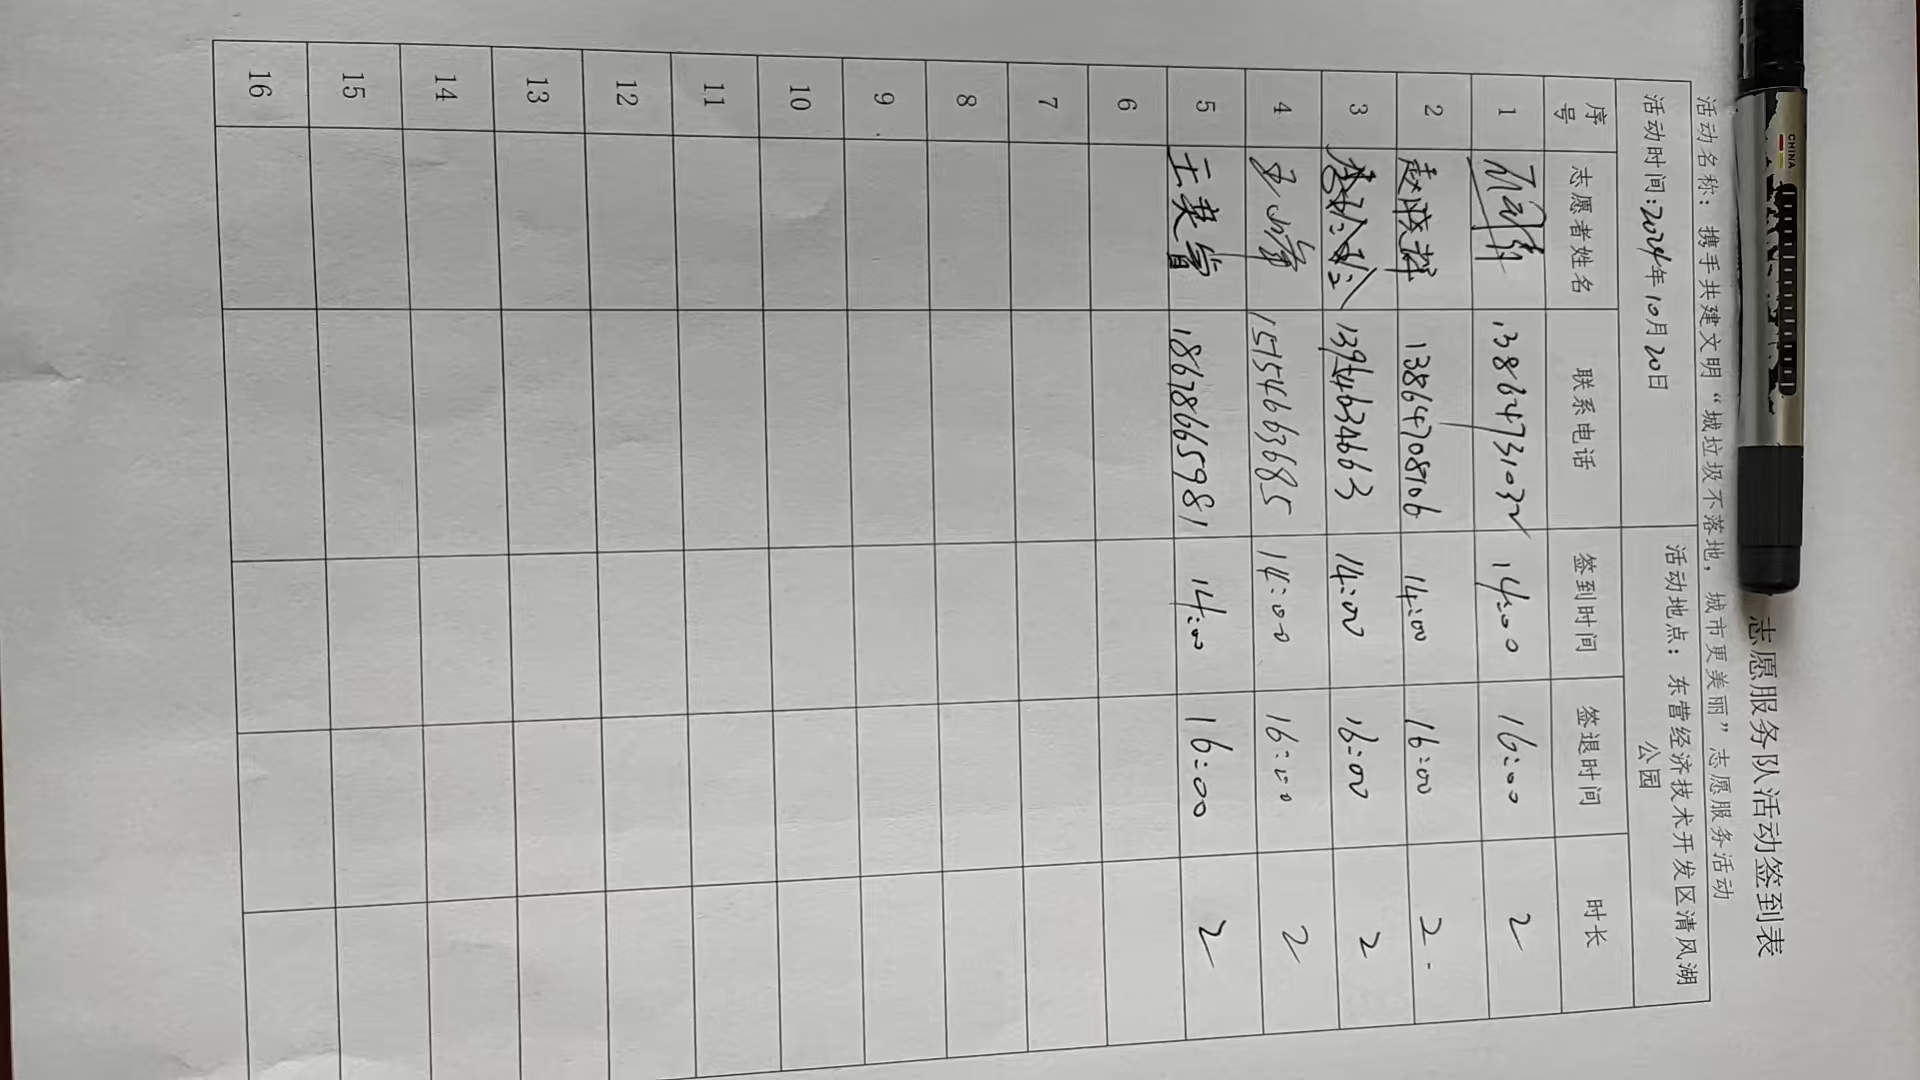 志愿服务队活动签到表
活动名称：携手共建文明“城垃圾不落地，城市更美丽”志愿服务活动
活动时间：2024年10月20日 活动地点：东营经济技术开发区清风湖
公园
序号 志愿者姓名 联系电话 签到时间 签退时间 时长
1 13864731032 14:00 16:00 2
2 13864708106 14:00 16:00 2
3 14:00 16:00 2
4 15154663685 14:00 16:00 2
5 18678665981 14:00 16:00 2
6
7
8
9
10
11
12
13
14
15
16
CHINA